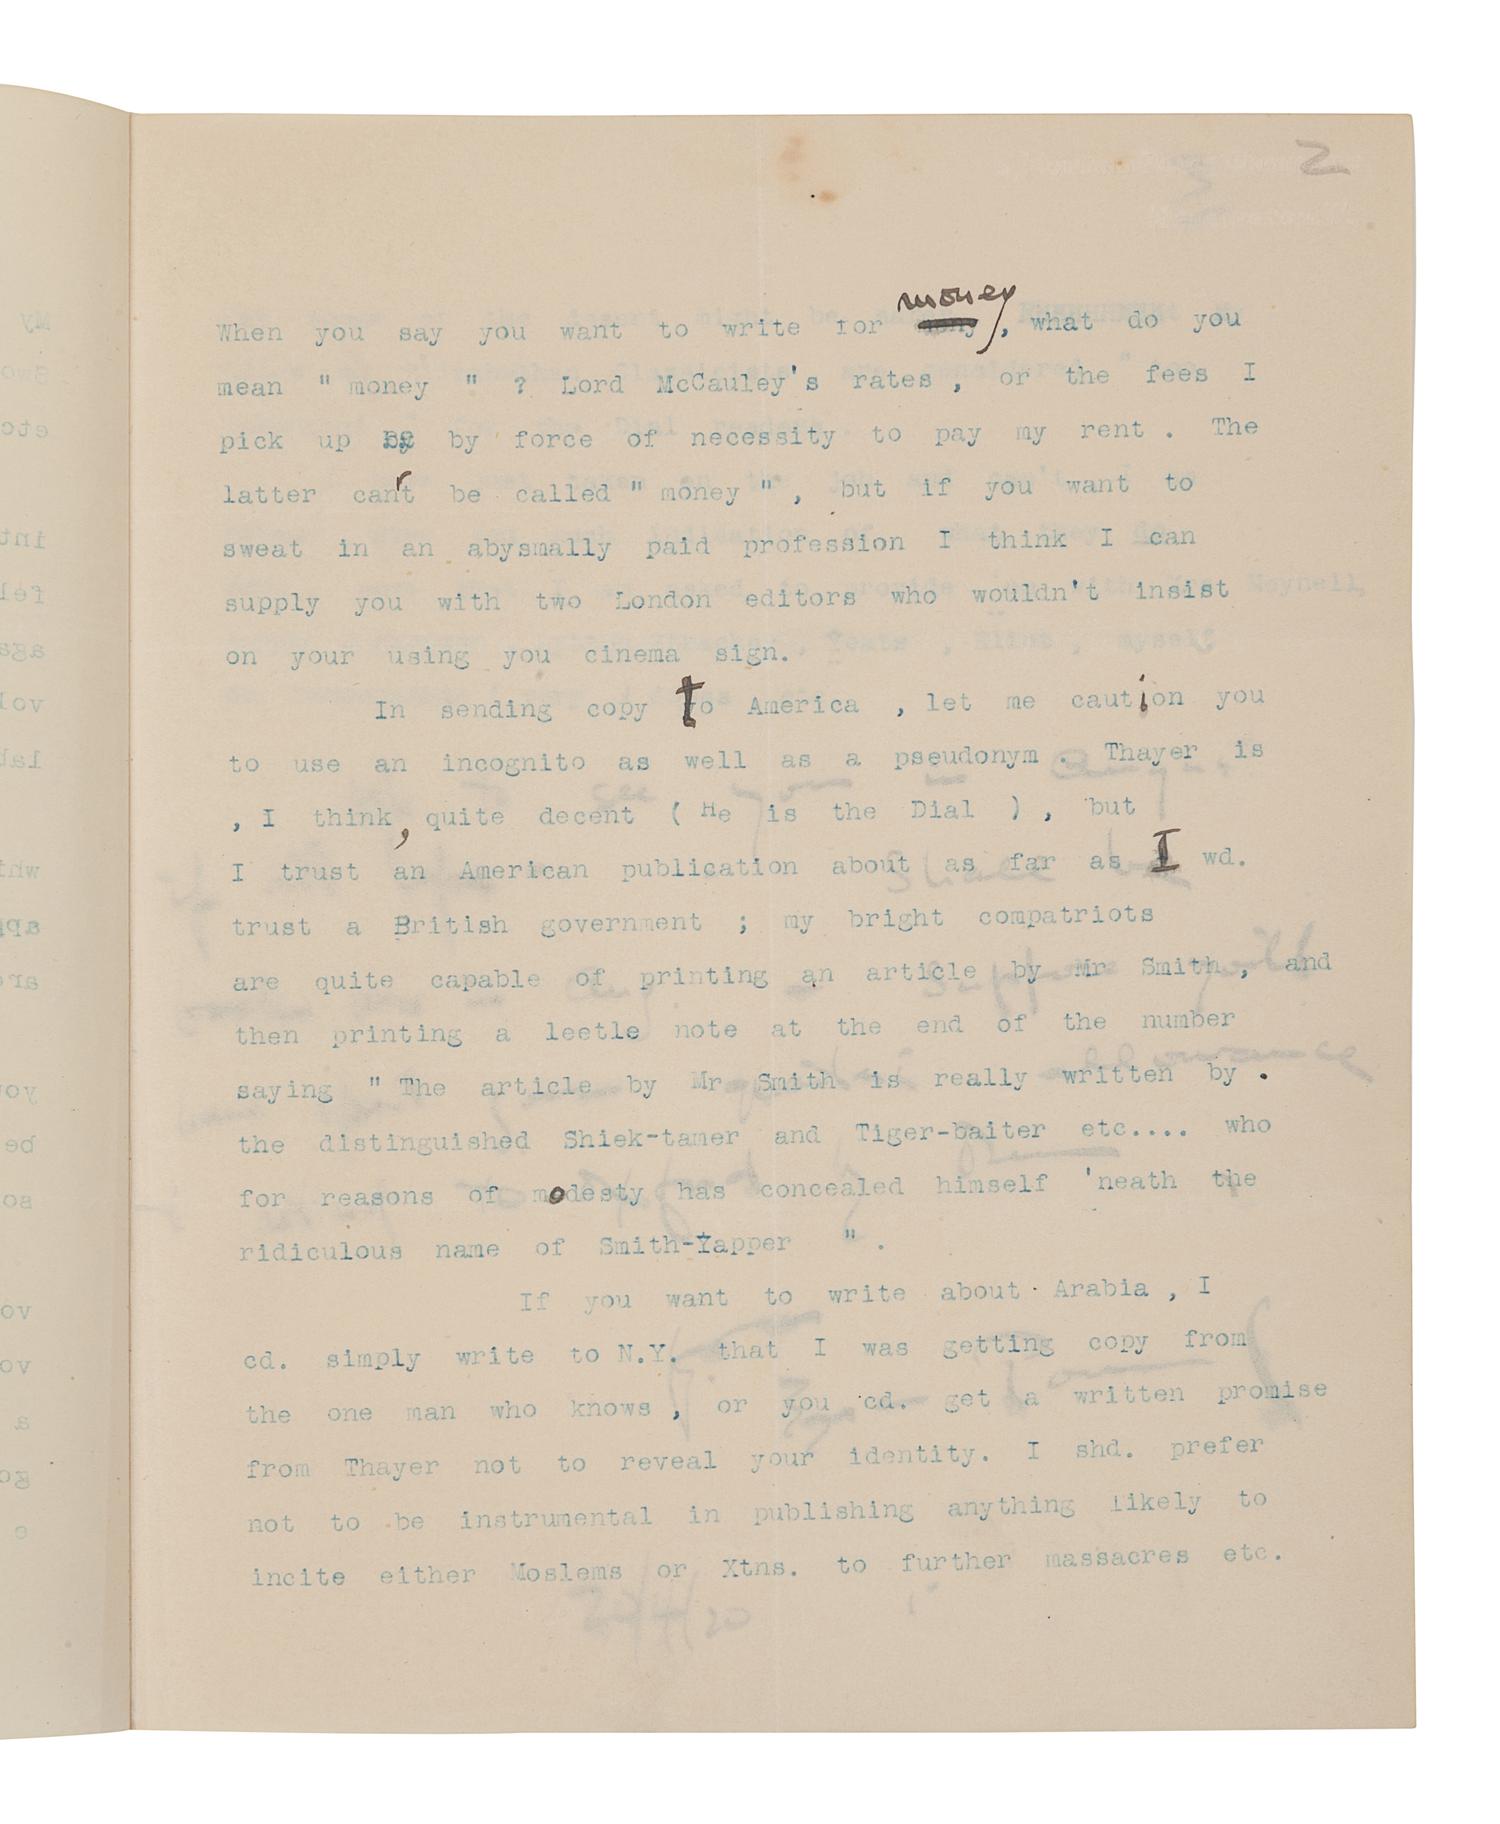 2
When you say you want to write for money, what do you
mean " money " ? Lord McCauley's rates , or the fees I
pick up by force of necessity to pay my rent . The
latter can't be called " money " , but if you want to
sweat in an abysmally paid profession I think I can
supply you with two London editors who wouldn't insist
on your using you cinema sign.
In sending copy to America , let me caution you
to use an incognito as well as a pseudonym . Thayer is
, I think, quite decent ( He is the Dial ) , but
I trust an American publication about as far as I wd.
trust a British government ; my bright compatriots
are quite capable of printing an article by Mr Smith , and
then printing a leetle note at the end of the number
saying " The article by Mr Smith is really written by .
the distinguished Shiek-tamer and Tiger-baiter etc.... who
for reasons of modesty has concealed himself 'neath the
ridiculous name of Smith-Yapper " .
If you want to write about Arabia , I
cd. simply write to N.Y. that I was getting copy from
the one man who knows , or you cd. get a written promise
from Thayer not to reveal your identity. I shd. prefer
not to be instrumental in publishing anything likely to
incite either Moslems or Xtns. to further massacres etc.